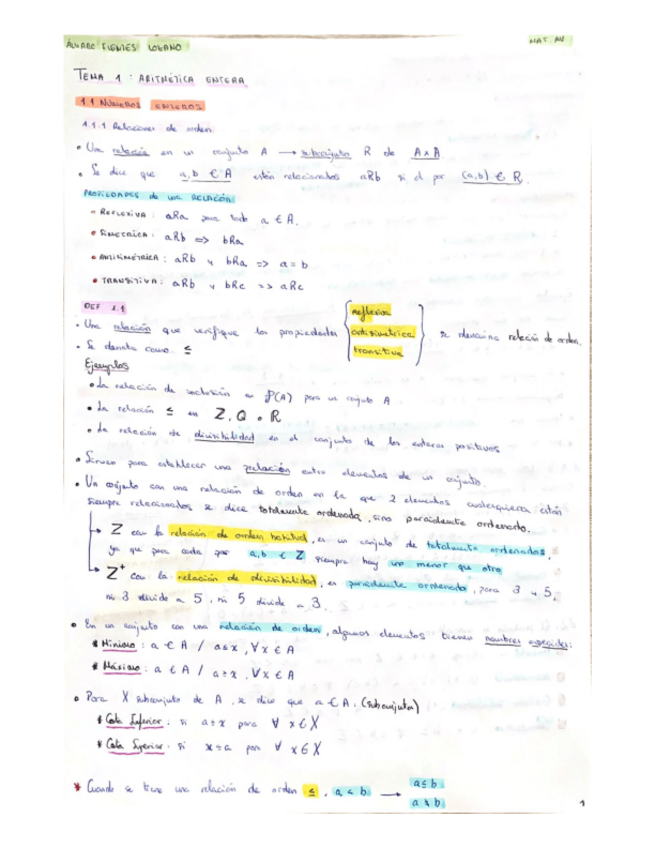 ÁLVARO FUENTES LOZANO
MAT. AV
TEMA 1 : ARITMÉTICA ENTERA
1.1 NÚMEROS ENTEROS
1.1.1 Relaciones de orden.
• Una relación en un conjunto A → subconjunto R de A×A.
• Se dice que a,b ∈ A están relacionados aRb si el par (a,b) ∈ R.
PROPIEDADES de una RELACIÓN
• REFLEXIVA : aRa para todo a ∈ A.
• SIMÉTRICA : aRb => bRa
• ANTISIMÉTRICA : aRb y bRa => a = b
• TRANSITIVA : aRb y bRc => aRc
DEF 1.1
• Una relación que verifique las propiedades { reflexiva antisimétrica transitiva } se denomina relación de orden.
• Se denota como ≤
Ejemplos
• La relación de inclusión en P(A) para un conjunto A
• La relación ≤ en Z, Q o R
• La relación de divisibilidad en el conjunto de los enteros positivos
• Sirven para establecer una prelación entre elementos de un conjunto.
• Un conjunto con una relación de orden en la que 2 elementos cualesquiera están
siempre relacionados se dice totalmente ordenado, sino parcialmente ordenado.
→ Z con la relación de orden habitual, es un conjunto de totalmente ordenados,
ya que para cada par a,b ∈ Z siempre hay uno menor que otro
→ Z⁺ con la relación de divisibilidad, es parcialmente ordenado, para 3 y 5,
ni 3 divide a 5, ni 5 divide a 3.
• En un conjunto con una relación de orden, algunos elementos tienen nombres especiales:
* Mínimo : a ∈ A / a≤x, ∀x ∈ A
* Máximo : a ∈ A / a≥x, ∀x ∈ A
• Para X subconjunto de A, se dice que a ∈ A. (subconjunto)
* Cota Inferior : si a≤x para ∀ x∈X
* Cota Superior : si x≤a para ∀ x∈X
* Cuando se tiene una relación de orden ≤, a < b → a≤b
a≠b
1